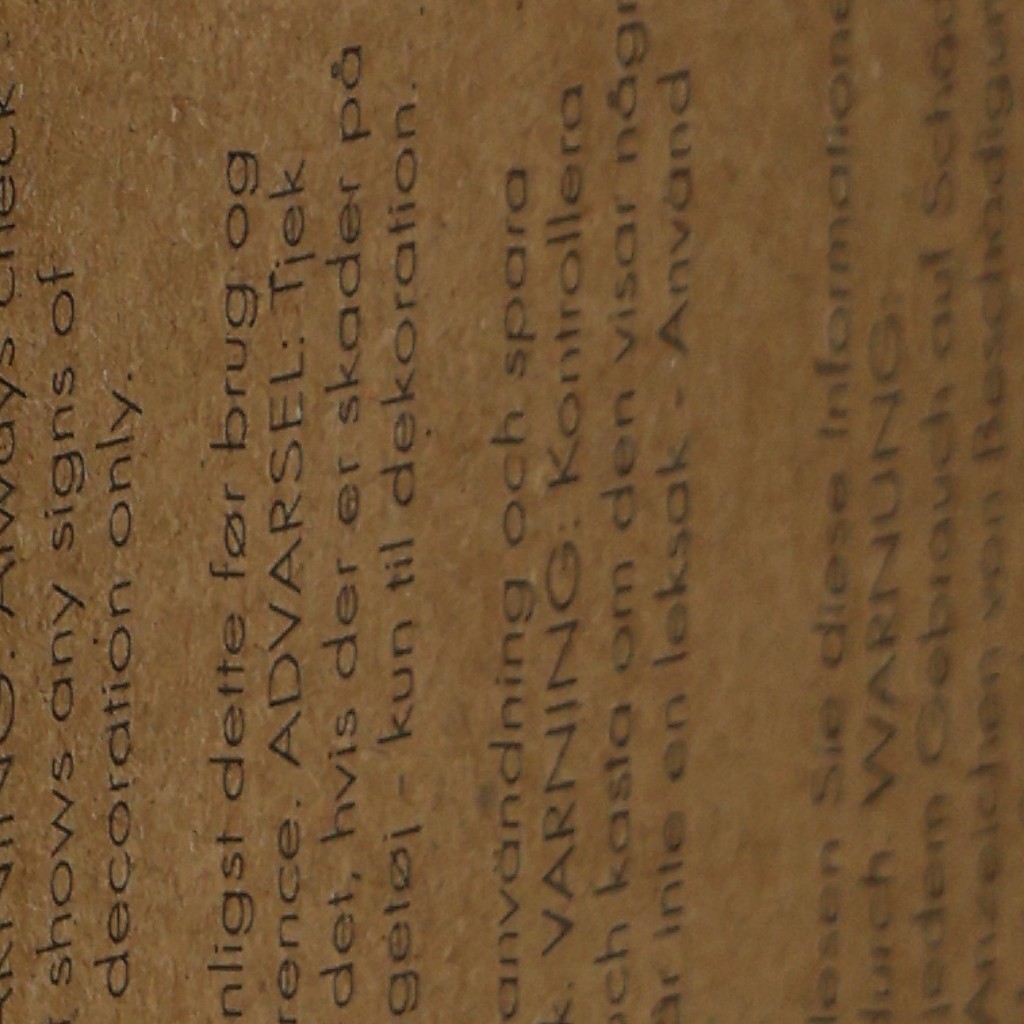 WARNING: Always check
shows any signs of
decoration only.
nligst dette før brug og
rence. ADVARSEL: Tjek
det, hvis der er skader på
getøj - kun til dekoration.
användning och spara
k. VARNING: Kontrollera
och kasta om den visar någr
är inte en leksak - Använd
lesen Sie diese Informatione
durch. WARNUNG:
jedem Gebrauch auf Schäd
Anzeichen von Beschädigun